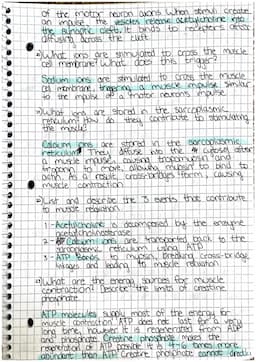 of the motor neuron axons. When stimuli create
an impulse, the vesicles release acetylcholine into
the synaptic cleft. It binds to receptors after
diffusing across the cleft
What ions are stimulated to cross the muscle
cell membrane? What does this trigger?
Sodium ions are stimulated to cross the muscle
cell membrane, triggering a muscle impulse similar
to the impulse of a motor neuron's impulse
What ions are stored in the sarcoplasmic
reticulum? How do they contribute to stimulating
the muscle?
Calcium ions are stored in the sarcoplasmic
reticulum. They diffuse into the after
a muscle impulse, causing tropomyosin and
troponin to move, allowing myosin to bind to
actin. As a result, cross-bridges form, causing
muscle contraction
List and describe the 3 events that contribute
to muscle relaxation
1- Acetylcholine is decomposed by the enzyme
acetylcholinesterase
2- Calcium ions are transported back to the
sarcoplasmic reticulum using ATP
3- ATP binds to myosin, breaking cross-bridge
linkages and leading to muscle relaxation
What are the energy sources for muscle
contraction? Describe the limits of creatine
phosphate
ATP molecules supply most of the energy for
muscle contraction. ATP does not last for a very
long time, however it is regenerated from ADP
and phosphate. Creatine phosphate makes the
regeneration of ATP possible. It is 4-6 times more
abundant than ATP. Creatine phosphate cannot directly